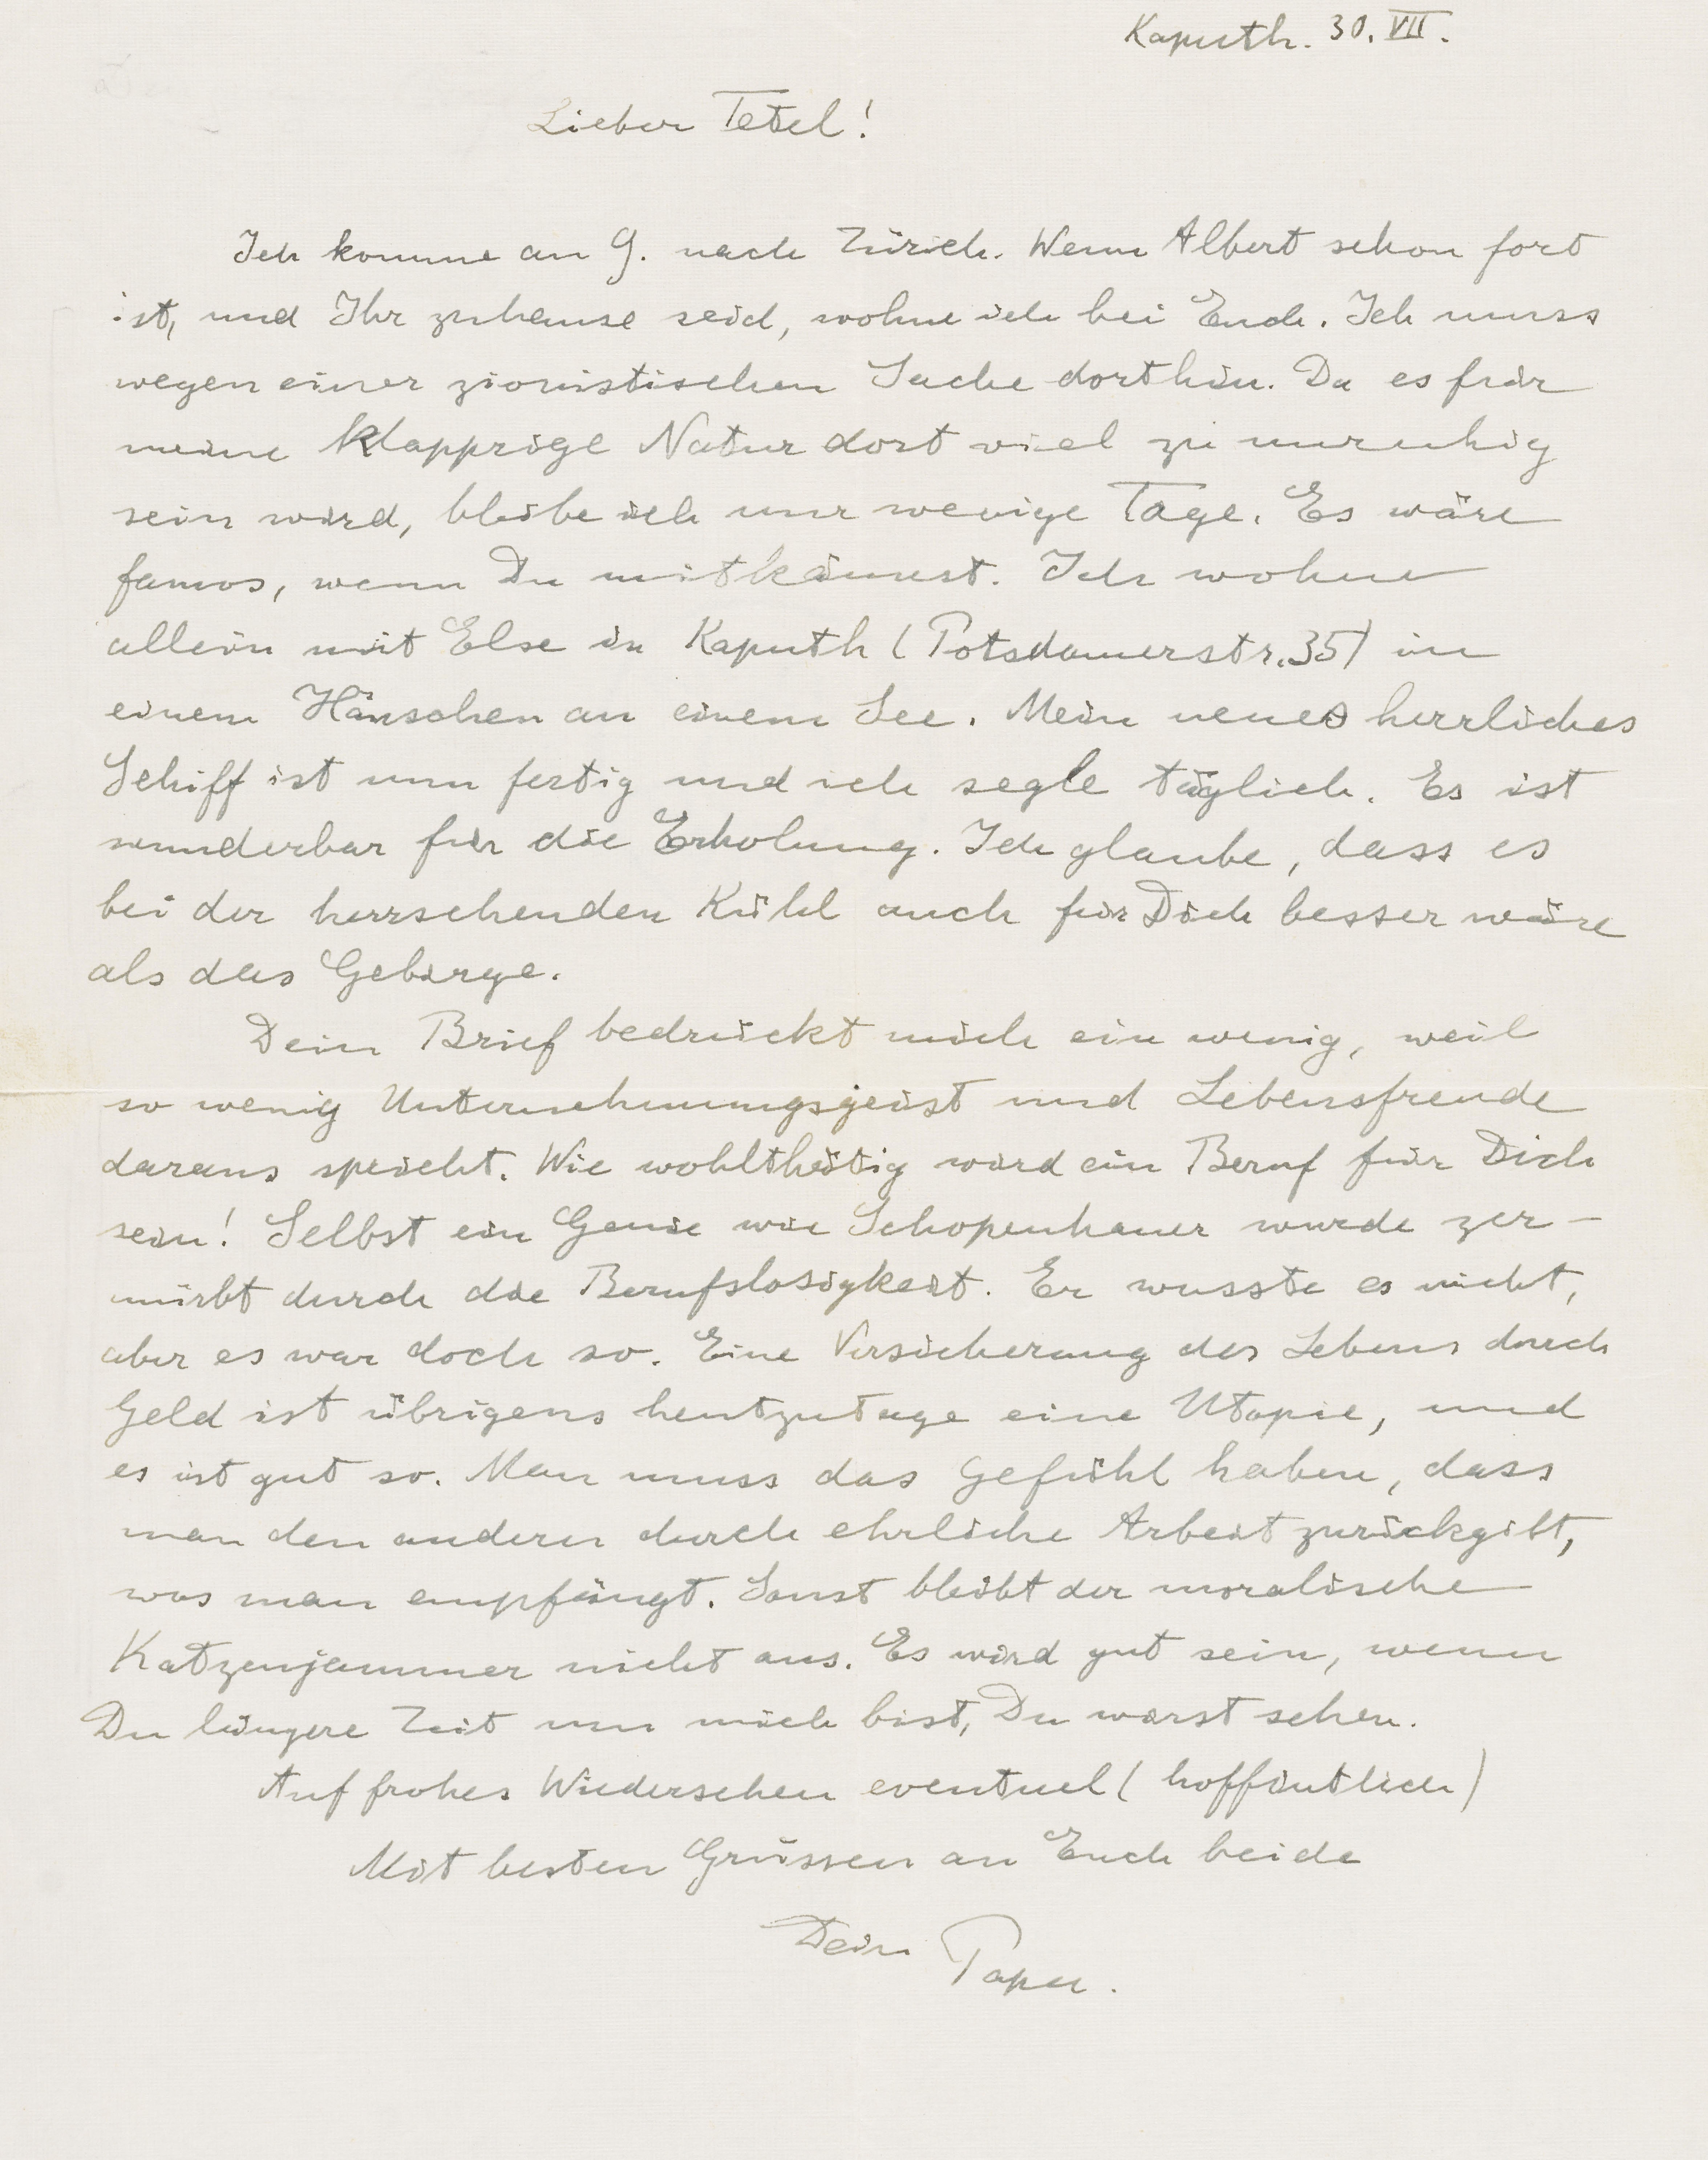 Kaputh. 30. VII.
Lieber Tetel!
Ich komme am 9. nach Zürich. Wenn Albert schon fort
ist, und Ihr zuhause seid, wohne ich bei Euch. Ich muss
wegen einer zionistischen Sache dorthin. Da es für
meine klapprige Natur dort viel zu unruhig
sein wird, bleibe ich nur wenige Tage. Es wäre
famos, wenn Du mitkämest. Ich wohne
allein mit Else in Kaputh (Potsdamerstr. 35) in
einem Häuschen an einem See. Mein neues herrliches
Schiff ist nun fertig und ich segle täglich. Es ist
wunderbar für die Erholung. Ich glaube, dass es
bei der herrschenden Kühl auch für Dich besser wäre
als das Gebirge.
Dein Brief bedrückt mich ein wenig, weil
so wenig Unternehmungsgeist und Lebensfreude
daraus spricht. Wie wohlthätig wird ein Beruf für Dich
sein! Selbst ein Genie wie Schopenhauer wurde zer-
mürbt durch die Berufslosigkeit. Er wusste es nicht,
aber es war doch so. Eine Versicherung des Lebens durch
Geld ist übrigens heutzutage eine Utopie, und
es ist gut so. Man muss das Gefühl haben, dass
man den andern durch ehrliche Arbeit zurückgibt,
was man empfängt. Sonst bleibt der moralische
Katzenjammer nicht aus. Es wird gut sein, wenn
Du längere Zeit um mich bist, Du wirst sehen.
Auf frohes Wiedersehen eventuel (hoffentlich)
Mit besten Grüssen an Euch beide
Dein Papa.